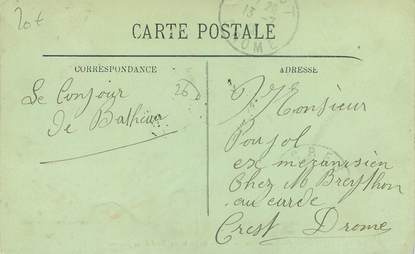 20t
CARTE POSTALE
CORRESPONDANCE
ADRESSE
26
Le Bonjour
de Mathieu
Monsieur
Poujol
ex mezanisien
Chez M Breython
au carde
Crest Drome